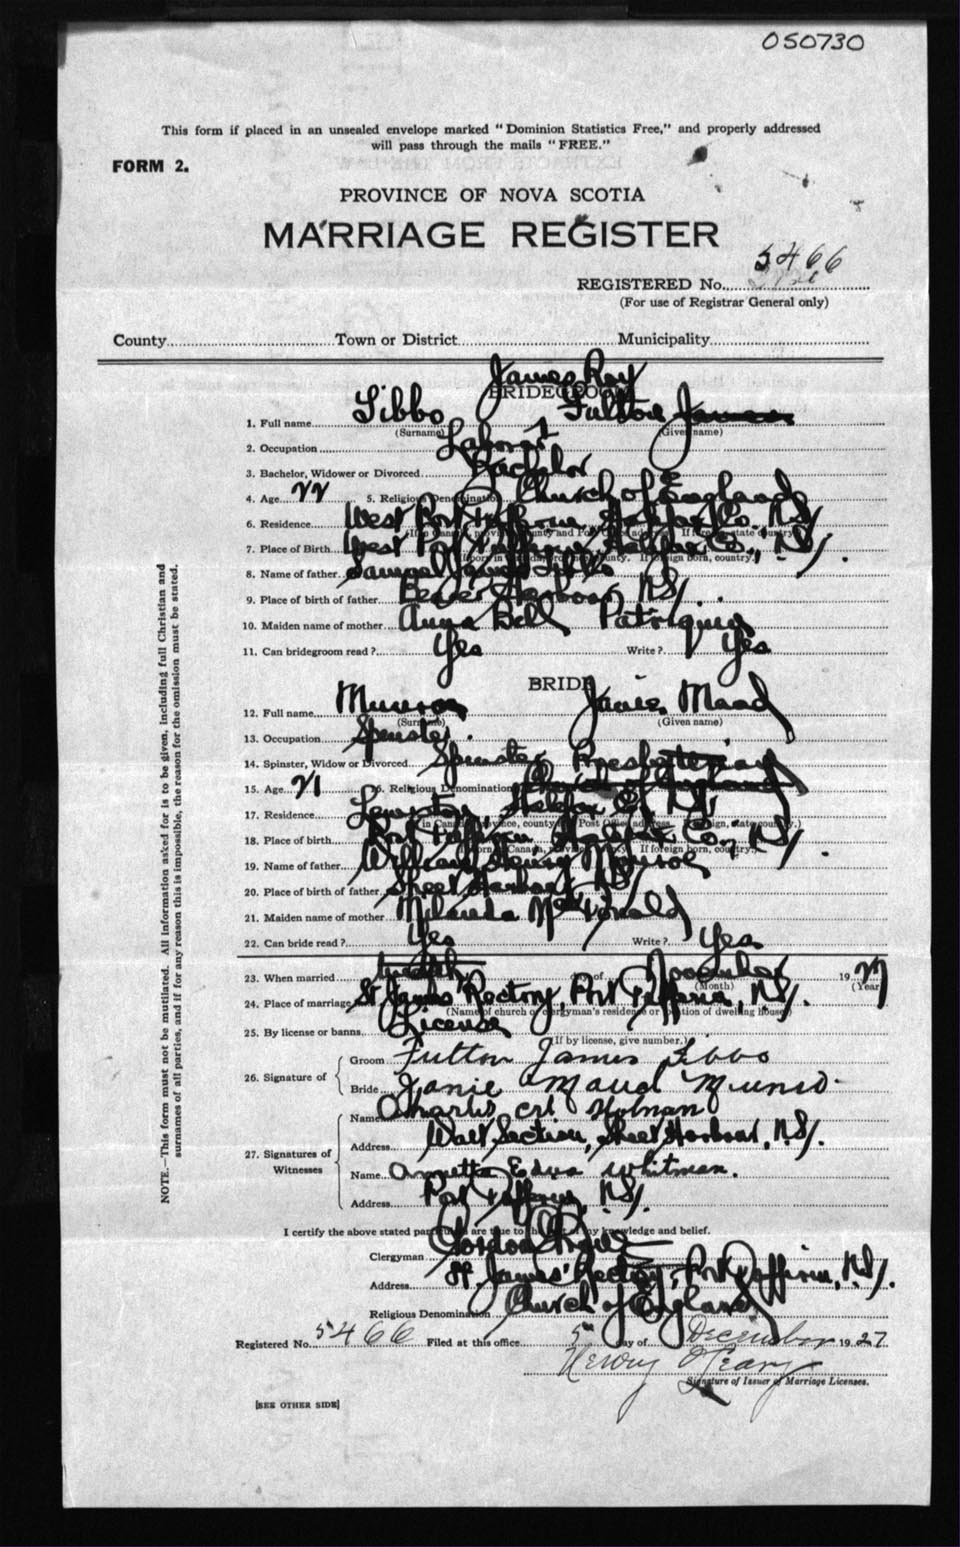 050730
This form if placed in an unsealed envelope marked "Dominion Statistics Free," and properly addressed
will pass through the mails "FREE."
FORM 2.
PROVINCE OF NOVA SCOTIA
MARRIAGE REGISTER
5466
REGISTERED No.
(For use of Registrar General only)
County Town or District Municipality
James Roy
BRIDEGROOM
1. Full name Gibbo Fulton James
(Surname) (Given name)
2. Occupation Laborer
3. Bachelor, Widower or Divorced Bachelor
4. Age 22 5. Religious Denomination Church of England
6. Residence West Port Dufferin, Halifax Co. N.S.
7. Place of Birth West Port Dufferin, Halifax Co., N.S.
8. Name of father Samuel James Gibbo
9. Place of birth of father Beaver Harbour N.S.
10. Maiden name of mother Bell
11. Can bridegroom read? Yes Write? Yes
BRIDE
12. Full name Munroe Janie Maud
(Surname) (Given name)
13. Occupation Spinster
14. Spinster, Widow or Divorced Spinster Presbyterian
15. Age 21 16. Religious Denomination Church of England
17. Residence Halifax Co. N.S.
18. Place of birth Port Dufferin Halifax Co., N.S.
19. Name of father William Henry Munroe
20. Place of birth of father Sheet Harbour, N.S.
21. Maiden name of mother McDonald
22. Can bride read? Yes Write? Yes
23. When married day of November 1927
(Month) (Year)
24. Place of marriage St James Rectory, Port Dufferin, N.S.
(Name of church or clergyman's residence or location of dwelling house)
25. By license or banns License
(If by license, give number.)
26. Signature of
Groom Fulton James Gibbo
Bride Janie Maud Munro
27. Signatures of Witnesses
Name Charles Holman
Address West Section, Sheet Harbour, N.S.
Name Annetta Edna Whitman.
Address Port Dufferin, N.S.
I certify the above stated particulars are true to the best of my knowledge and belief.
Clergyman Gordon
Address St. James' Rectory, Port Dufferin, N.S.
Religious Denomination Church of England
Registered No. 5466 Filed at this office 5th day of December 1927
Henry O'Leary
Signature of Issuer of Marriage Licenses.
[SEE OTHER SIDE]
NOTE.—This form must not be mutilated. All information asked for is to be given, including full Christian and
surnames of all parties, and if for any reason this is impossible, the reason for the omission must be stated.